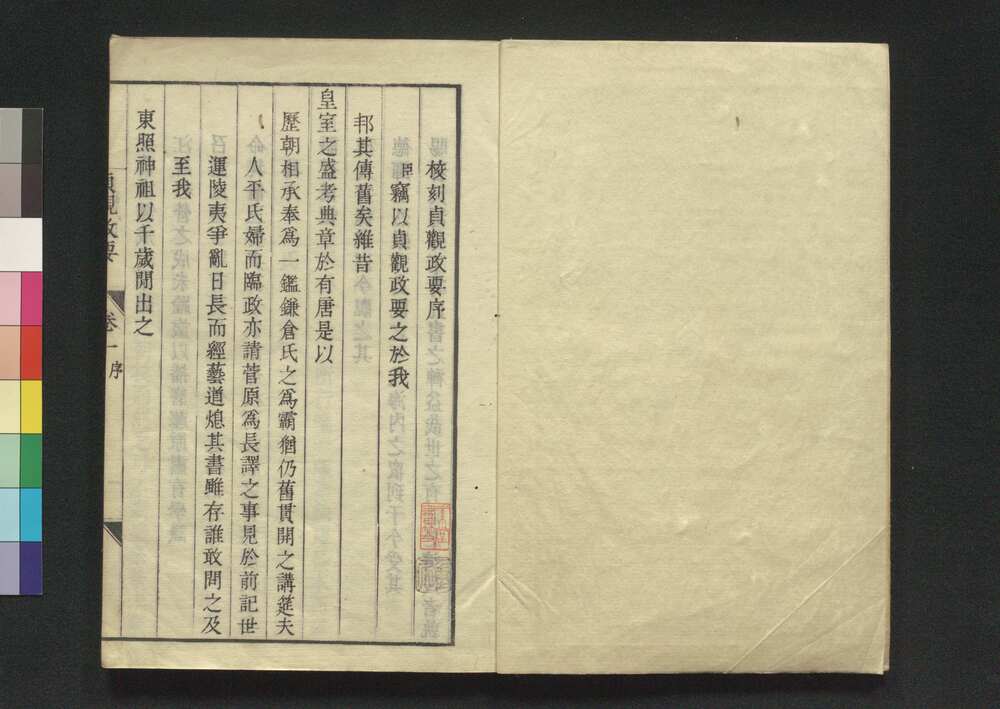 校刻貞觀政要序
臣竊以貞觀政要之於我
邦其傳舊矣雖昔
皇室之盛考典章於有唐是以
歷朝相承奉爲一鑑鎌倉氏之爲霸猶仍舊貫開之講筵夫
人平氏婦而臨政亦請菅原爲長譯之事見於前記世
運陵夷爭亂日長而經藝道熄其書雖存誰敢問之及
至我
東照神祖以千歲閒出之
貞觀政要 卷一 序